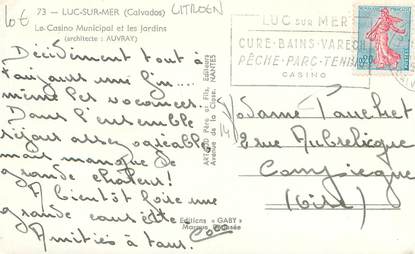 10€
73 - LUC-SUR-MER (Calvados)
CITROEN
Le Casino Municipal et les jardins
(architecte : AUVRAY)
LUC SUR MER
CURE-BAINS-VARECH
PÊCHE-PARC-TENNIS
CASINO
0,20
Décidément tout a
toujours une fin....
même les vacances.
Dans l'ensemble
séjour assez agréable
mais manque de
grande chaleur!
A bientôt
grande
Amitiés à tous.
ARTAUD Père et Fils, Editeurs
Avenue de la Close, NANTES
Editions « GABY »
Marque Déposée
Madame
2 rue
Compiègne
(Oise)